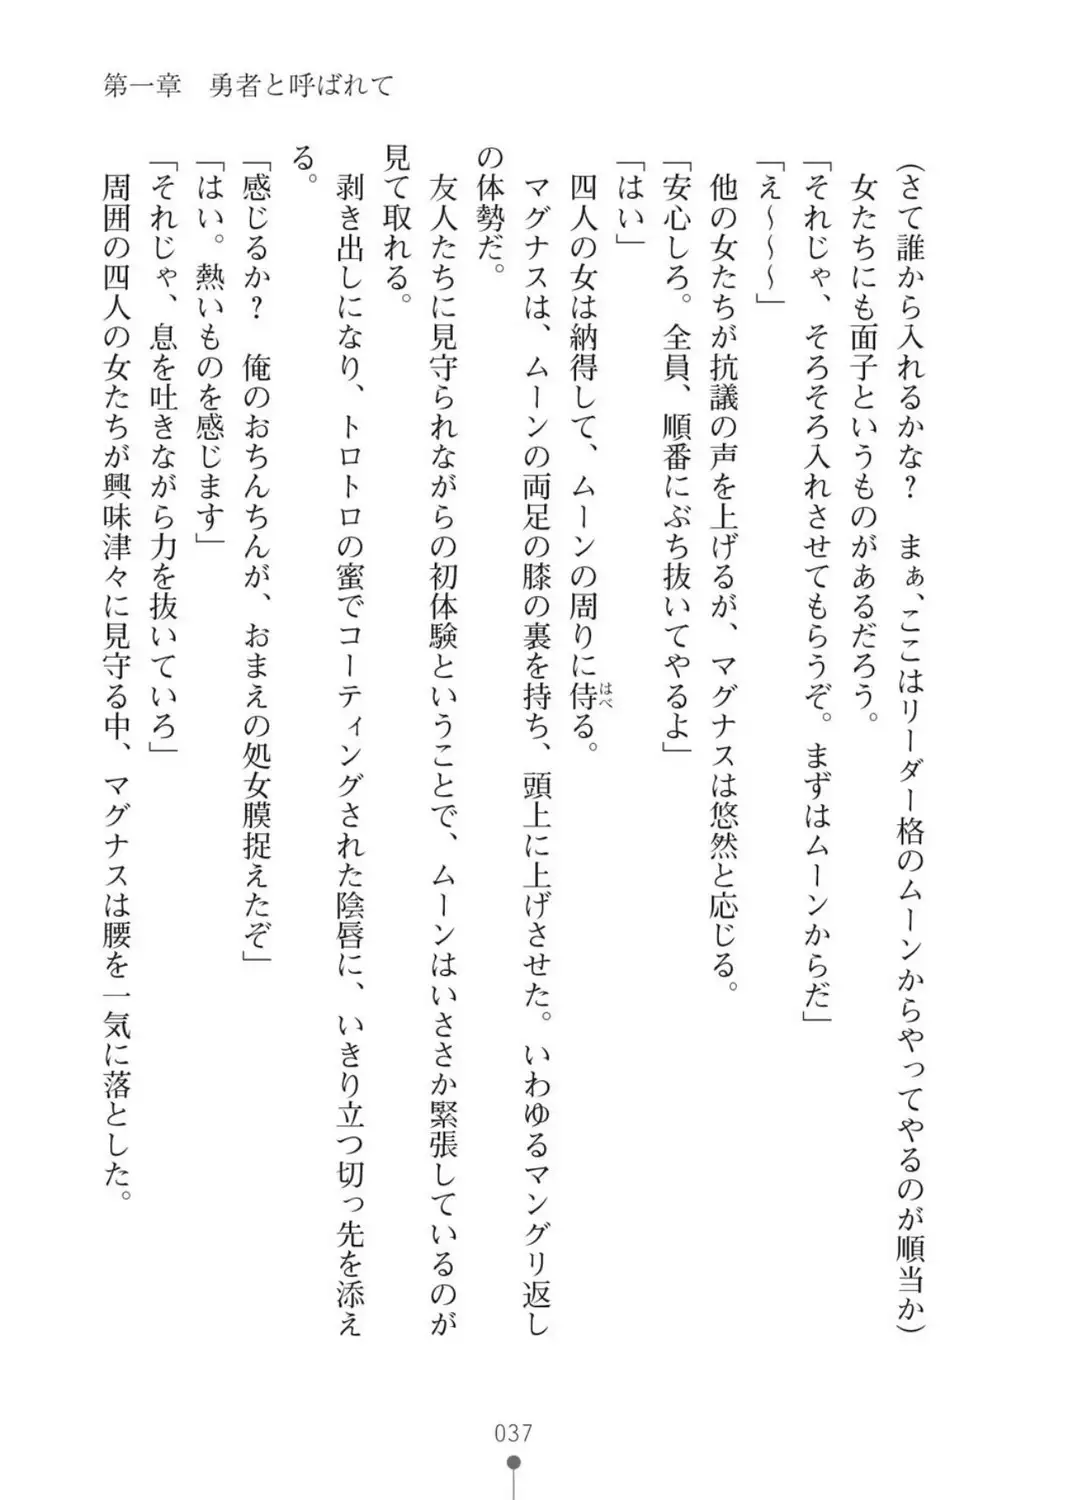 第一章　勇者と呼ばれて
(さて誰から入れるかな？　まぁ、ここはリーダー格のムーンからやってやるのが順当か)
　女たちにも面子というものがあるだろう。
「それじゃ、そろそろ入れさせてもらうぞ。まずはムーンからだ」
「え～～～」
　他の女たちが抗議の声を上げるが、マグナスは悠然と応じる。
「安心しろ。全員、順番にぶち抜いてやるよ」
「はい」
　四人の女は納得して、ムーンの周りに侍る。
はべ
　マグナスは、ムーンの両足の膝の裏を持ち、頭上に上げさせた。いわゆるマングリ返し
の体勢だ。
　友人たちに見守られながらの初体験ということで、ムーンはいささか緊張しているのが
見て取れる。
　剥き出しになり、トロトロの蜜でコーティングされた陰唇に、いきり立つ切っ先を添え
る。
「感じるか？　俺のおちんちんが、おまえの処女膜捉えたぞ」
「はい。熱いものを感じます」
「それじゃ、息を吐きながら力を抜いていろ」
　周囲の四人の女たちが興味津々に見守る中、マグナスは腰を一気に落とした。
037